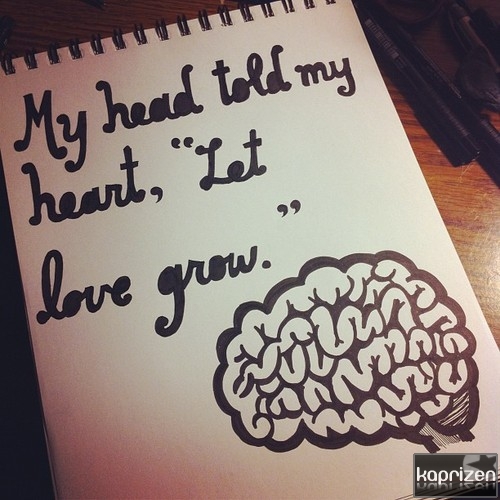 My head told my
heart, "Let
love grow."
kaprizen